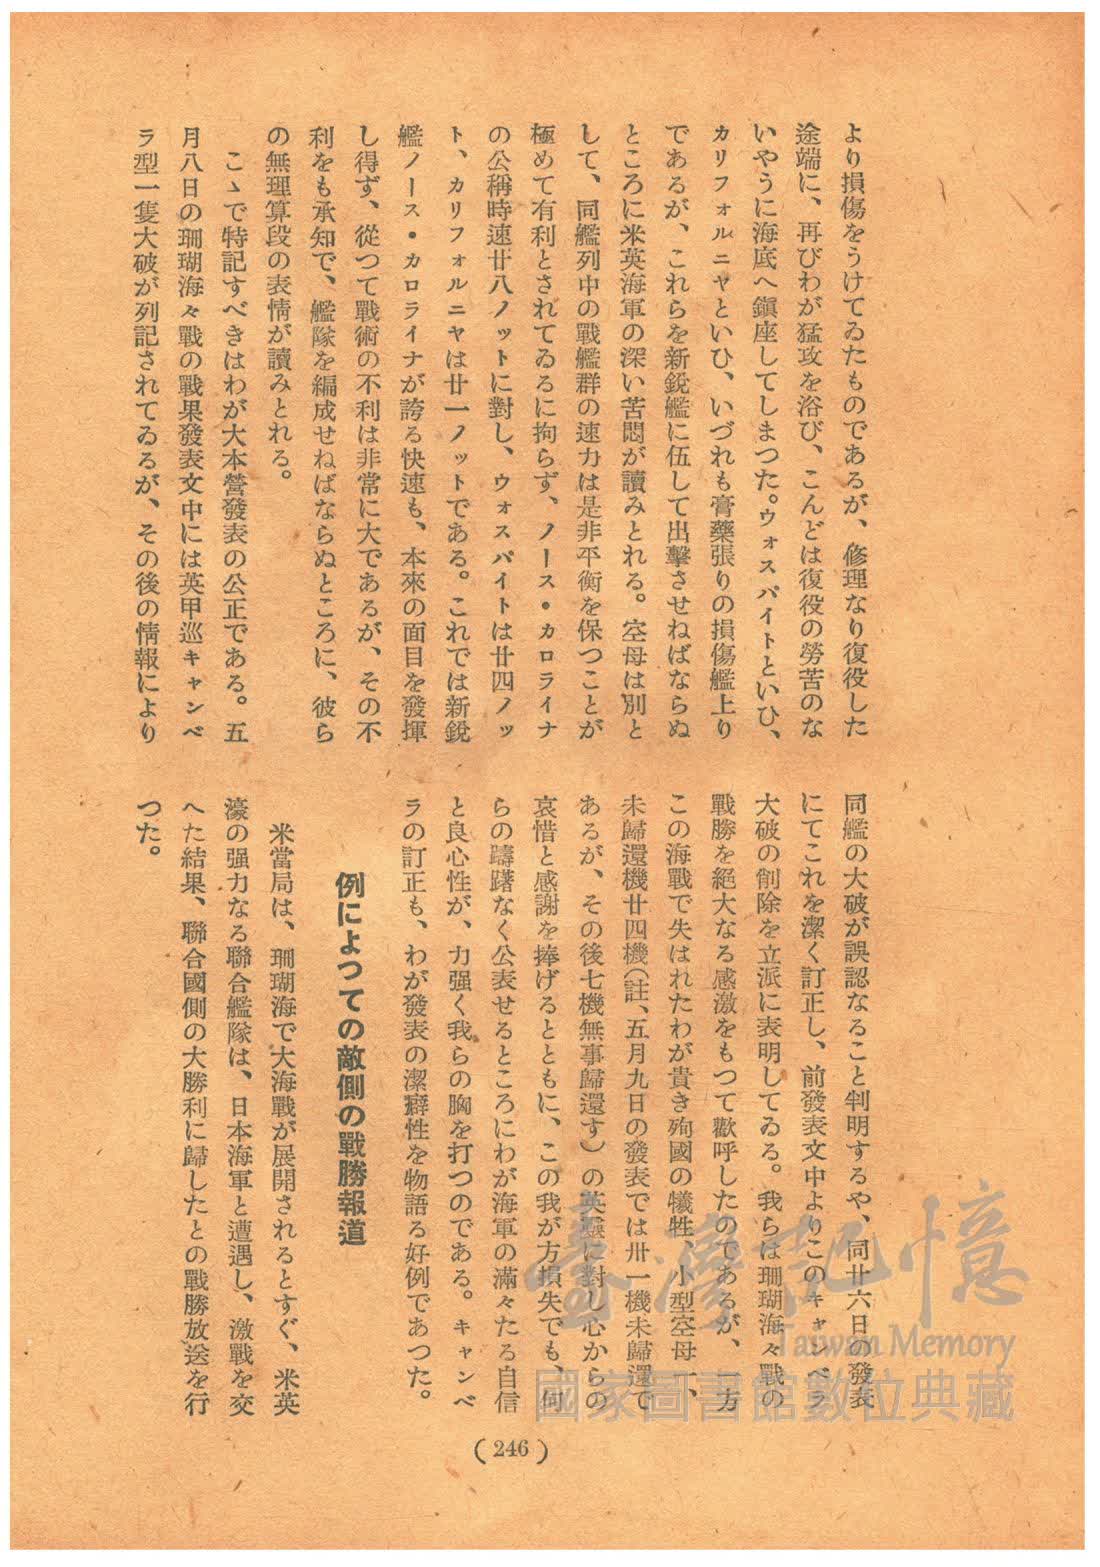 より損傷をうけてゐたものであるが、修理なり復役した
途端に、再びわが猛攻を浴び、こんどは復役の勞苦のな
いやうに海底へ鎭座してしまつた。ウォスパイトといひ、
カリフォルニヤといひ、いづれも膏藥張りの損傷艦上り
であるが、これらを新銳艦に伍して出擊させねばならぬ
ところに米英海軍の深い苦悶が讀みとれる。空母は別と
して、同艦列中の戰艦群の速力は是非平衡を保つことが
極めて有利とされてゐるに拘らず、ノース・カロライナ
の公稱時速廿八ノットに對し、ウォスパイトは廿四ノッ
ト、カリフォルニヤは廿一ノットである。これでは新銳
艦ノース・カロライナが誇る快速も、本來の面目を發揮
し得ず、從つて戰術の不利は非常に大であるが、その不
利をも承知で、艦隊を編成せねばならぬところに、彼ら
の無理算段の表情が讀みとれる。
こゝで特記すべきはわが大本營發表の公正である。五
月八日の珊瑚海々戰の戰果發表文中には英甲巡キャンベ
ラ型一隻大破が列記されてゐるが、その後の情報により
同艦の大破が誤認なること判明するや、同廿六日の發表
にてこれを潔く訂正し、前發表文中よりこのキャンベラ
大破の削除を立派に表明してゐる。我らは珊瑚海々戰の
戰勝を絕大なる感激をもつて歡呼したのであるが、一方
この海戰で失はれたわが貴き殉國の犧牲、小型空母一、
未歸還機廿四機(註、五月九日の發表では卅一機未歸還で
あるが、その後七機無事歸還す)の英靈に對し心からの
哀惜と感謝を捧げるとともに、この我が方損失でも、何
らの躊躇なく公表せるところにわが海軍の滿々たる自信
と良心性が、力强く我らの胸を打つのである。キャンベ
ラの訂正も、わが發表の潔癖性を物語る好例であつた。
例によつての敵側の戰勝報道
米當局は、珊瑚海で大海戰が展開されるとすぐ、米英
濠の强力なる聯合艦隊は、日本海軍と遭遇し、激戰を交
へた結果、聯合國側の大勝利に歸したとの戰勝放送を行
つた。
(246)
臺灣記憶
Taiwan Memory
國家圖書館數位典藏